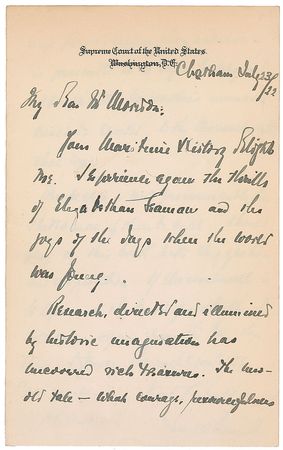 Supreme Court of the United States
Washington, D.C.
Chatham July 23/22
My Dear Mr Morison:
Your Maritime History Delights
me. I experience again the thrills
of Elizabethan Seaman and the
joys of the days when the world
was young.
Research, directed and illumined
by historic imagination has
uncovered rich treasures. The new-
old tale — what courage, resourcefulness